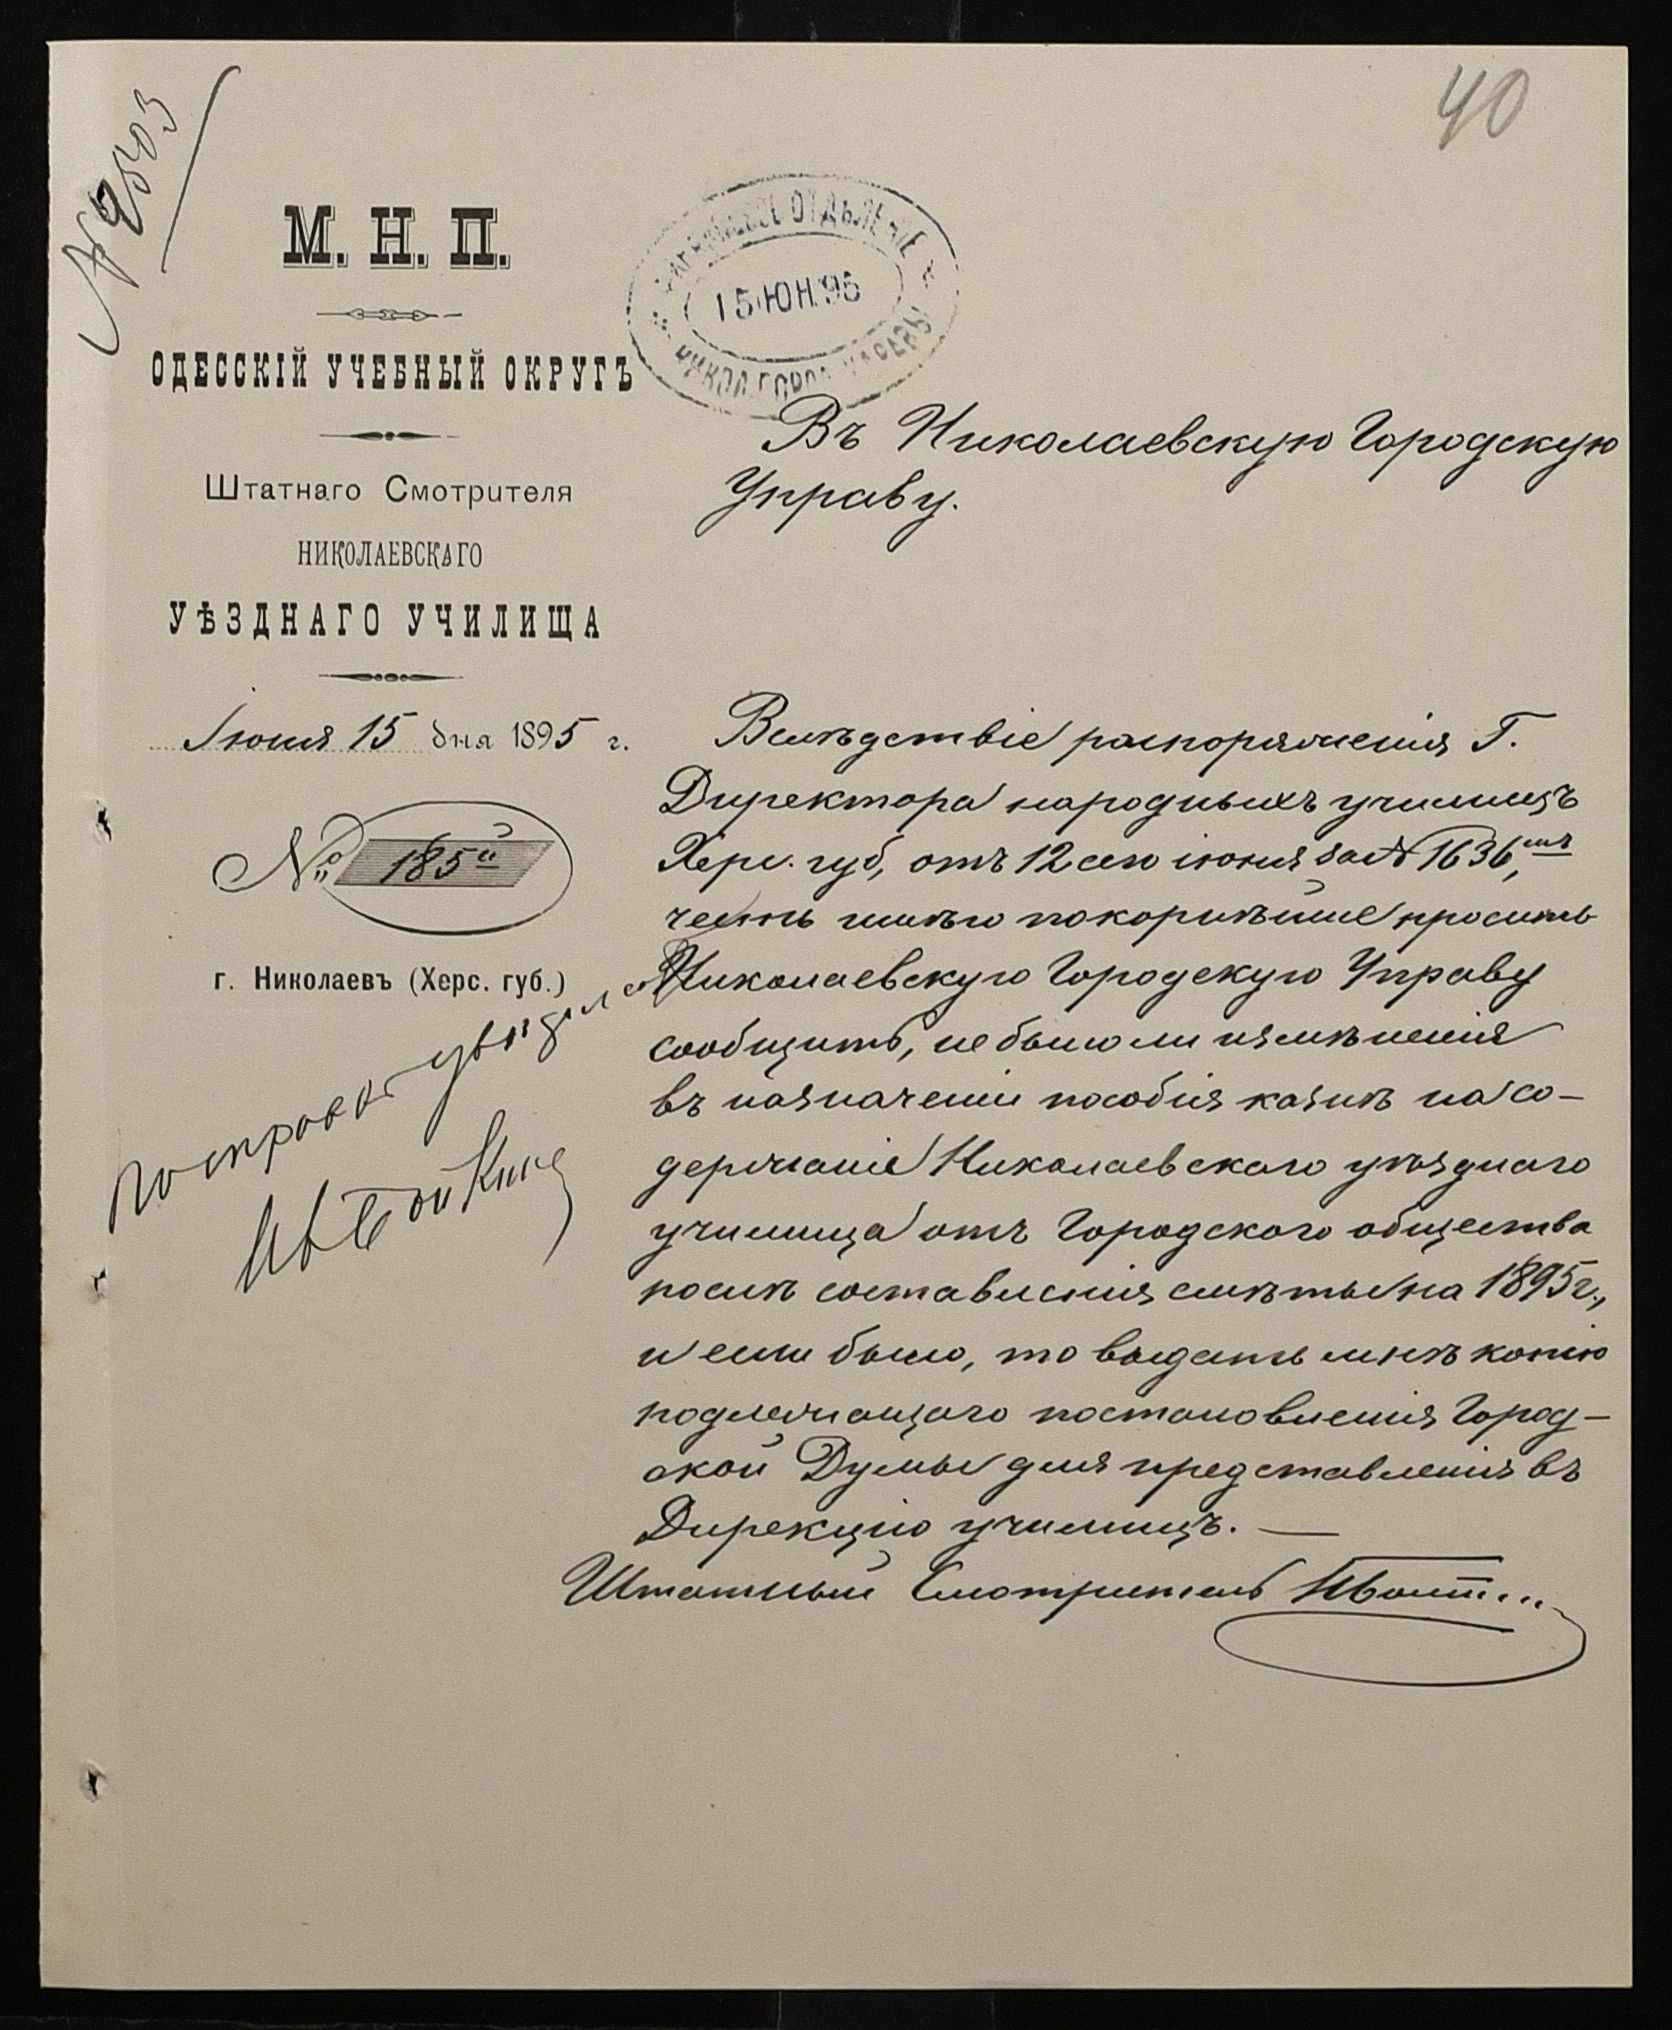 40
№ 2503
М. Н. П.
ОДЕССКІЙ УЧЕБНЫЙ ОКРУГЪ
Штатнаго Смотрителя
НИКОЛАЕВСКАГО
УѢЗДНАГО УЧИЛИЩА
Іюня 15 дня 1895 г.
№ 185
г. Николаевъ (Херс. губ.)
ОТДѢЛЕНІЕ
15 ІЮН. 95
НИКОЛ. ГОРОД. УПРАВЫ
Въ Николаевскую Городскую
Управу.
Вслѣдствіе распоряженія Г.
Директора народныхъ училищъ
Херс. губ., отъ 12 сего іюня за № 1636,
честь имѣю покорнѣйше просить
Николаевскую Городскую Управу
сообщить, не было ли измѣненія
въ назначеніи пособія казнѣ на со-
держаніе Николаевскаго уѣзднаго
училища отъ Городского общества
послѣ составленія смѣты на 1895 г.,
и если было, то выдать мнѣ копію
подлежащаго постановленія Город-
ской Думы для представленія въ
Дирекцію училищъ. —
Штатный Смотритель